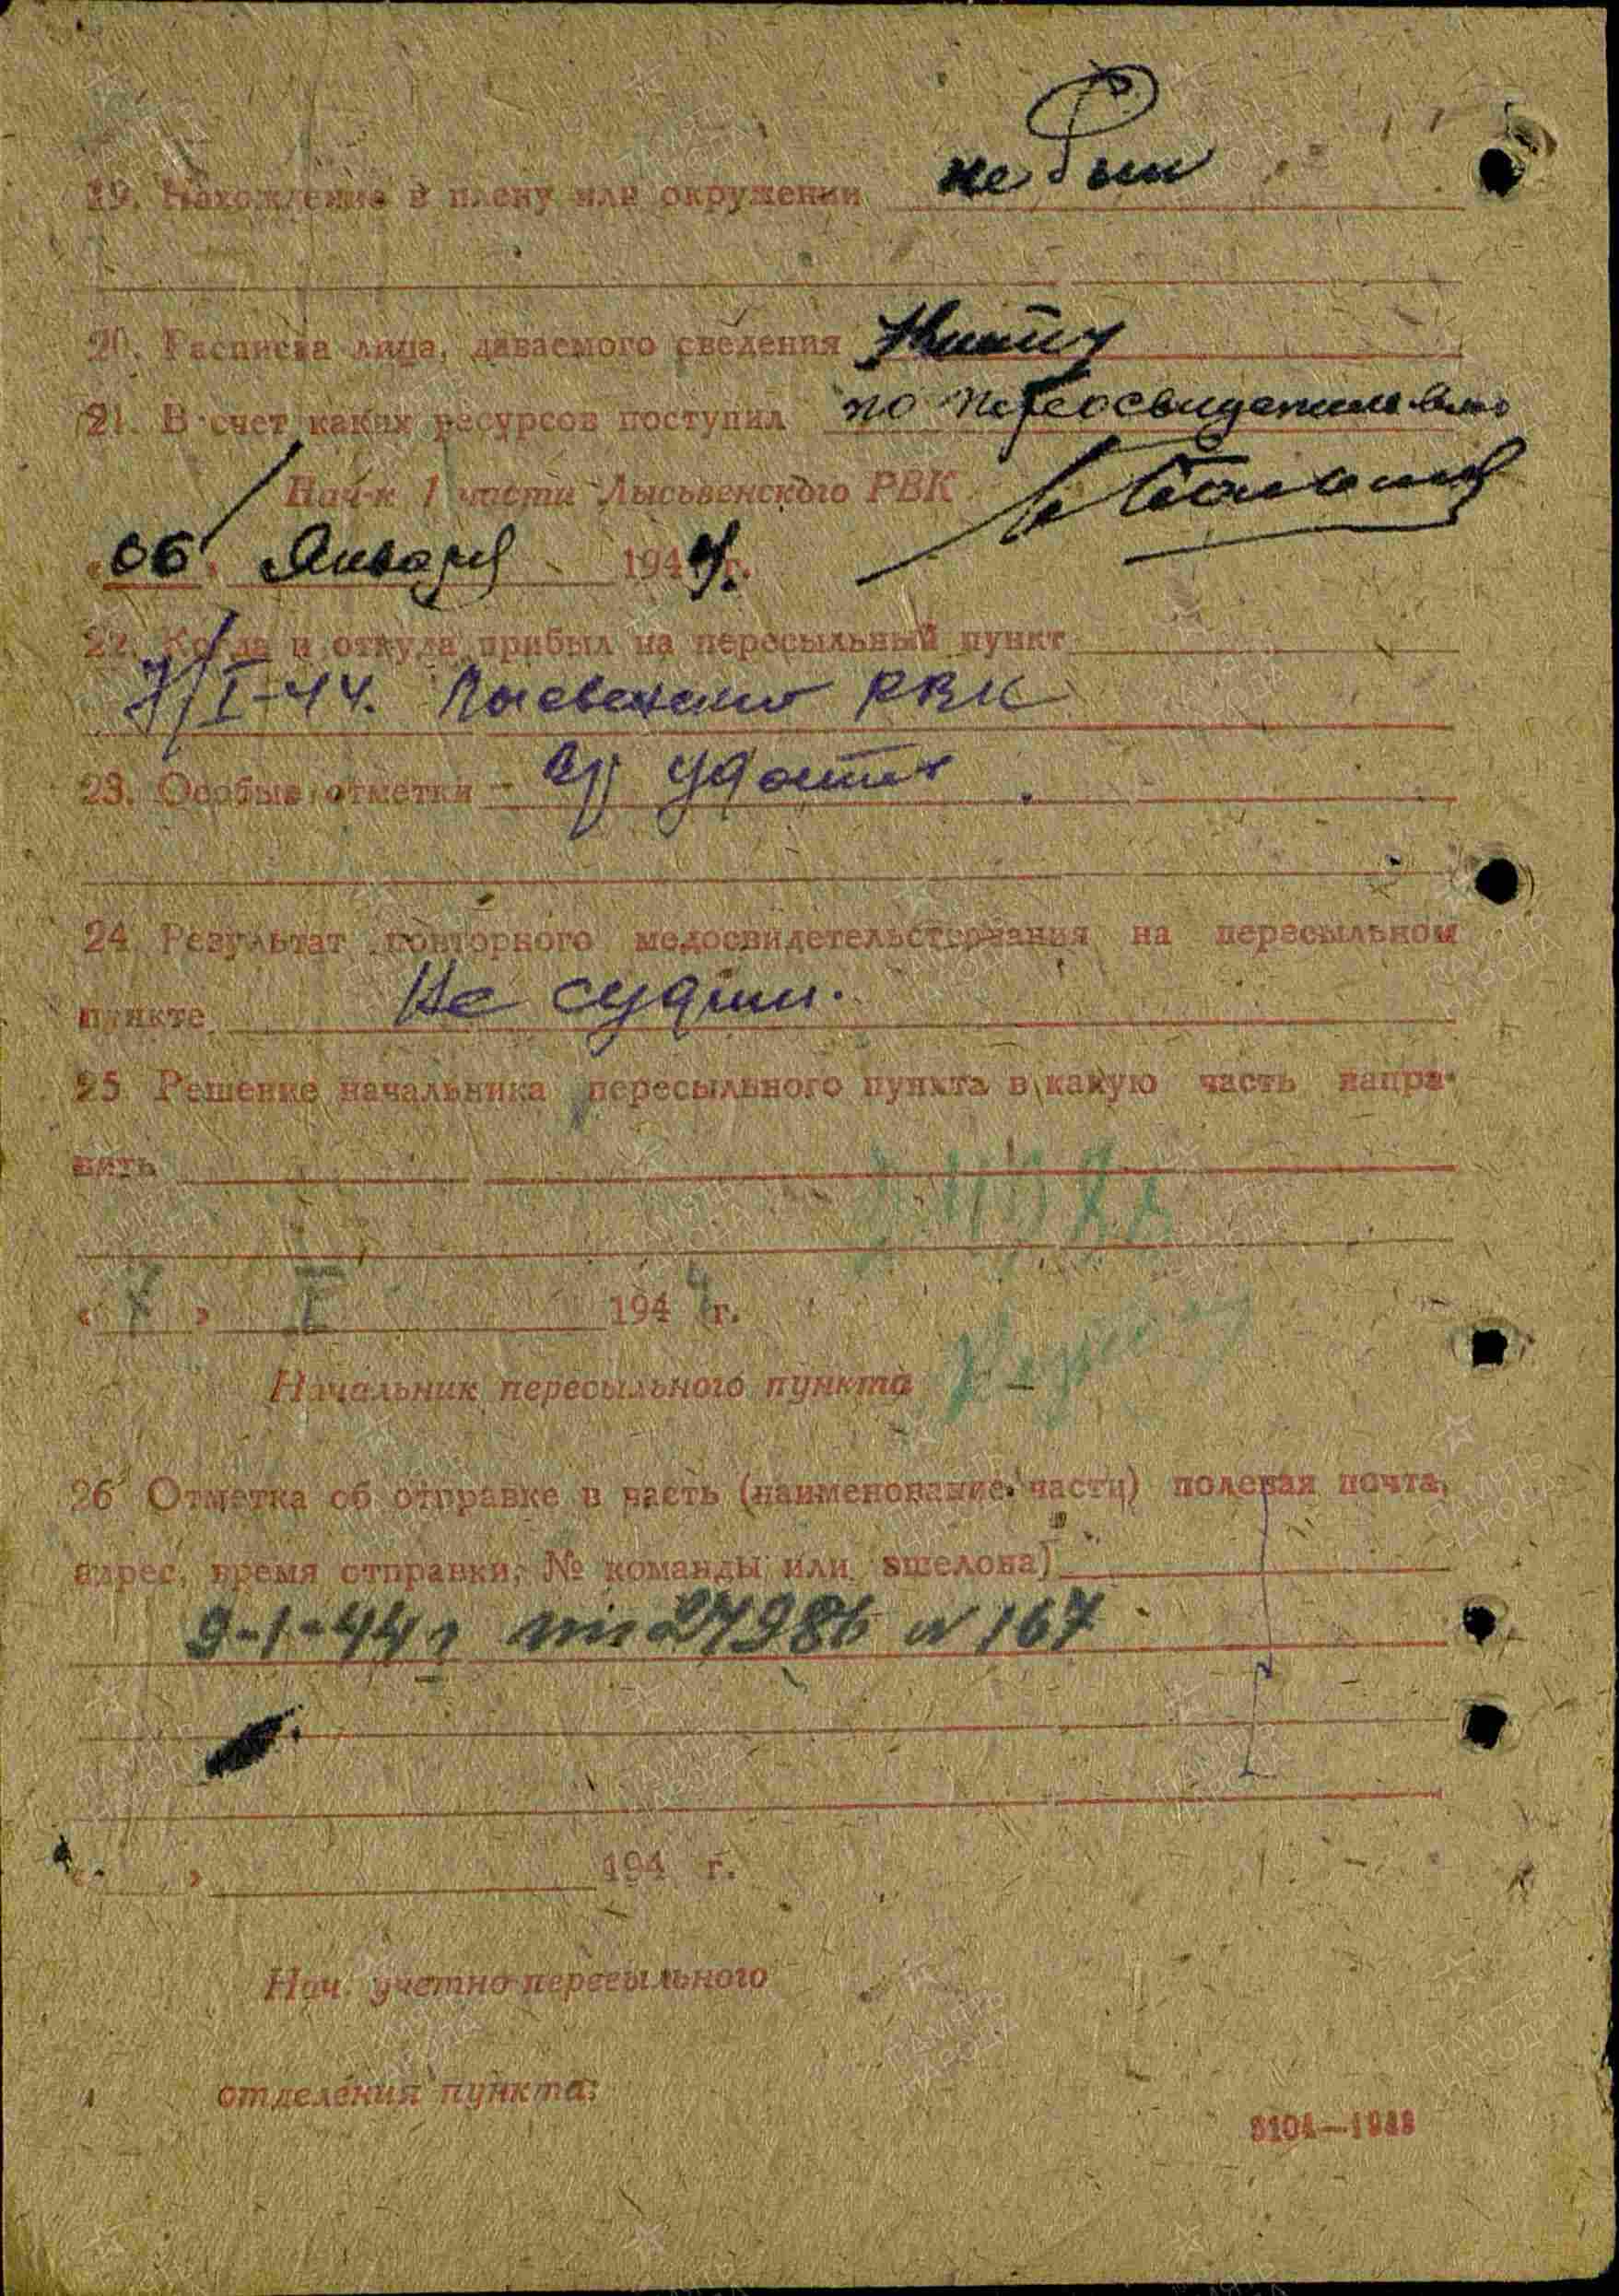 не был
19. Нахождение в плену или окружении
20. Расписка лица, даваемого сведения
21. В счет каких ресурсов поступил по переосвидетельств
Нач-к 1 части Лысьвенского РВК
«06» Января 1944 г.
22. Когда и откуда прибыл на пересыльный пункт
7/I-44. Лысвенского РВК
23. Особые отметки
24 Результат повторного медосвидетельствования на пересыльном
пункте Не судим.
25 Решение начальника пересыльного пункта в какую часть напра-
вить
« 7 » I 1944 г.
Начальник пересыльного пункта
26 Отметка об отправке в часть (наименование части) полевая почта,
адрес, время отправки, № команды или эшелона)
9-1-44 г пп 27986 № 167
« » 194 г.
Нач. учетно-пересыльного
отделения пункта:
3104—1943
ПАМЯТЬ НАРОДА